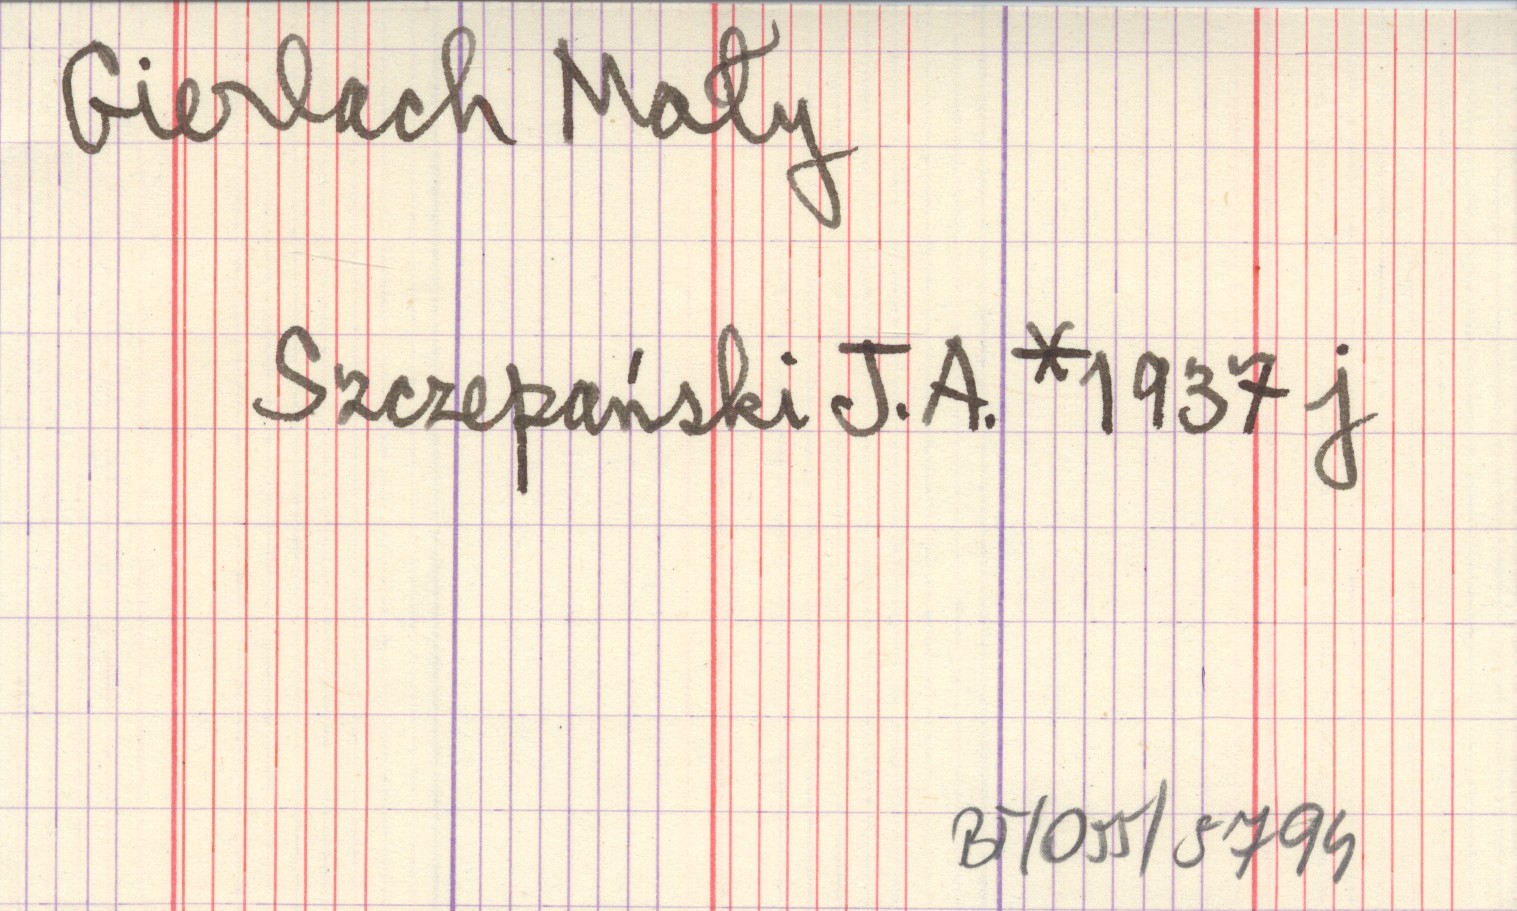 Gierlach Mały
Szczepański J.A. *1937 j
BT/055/5794